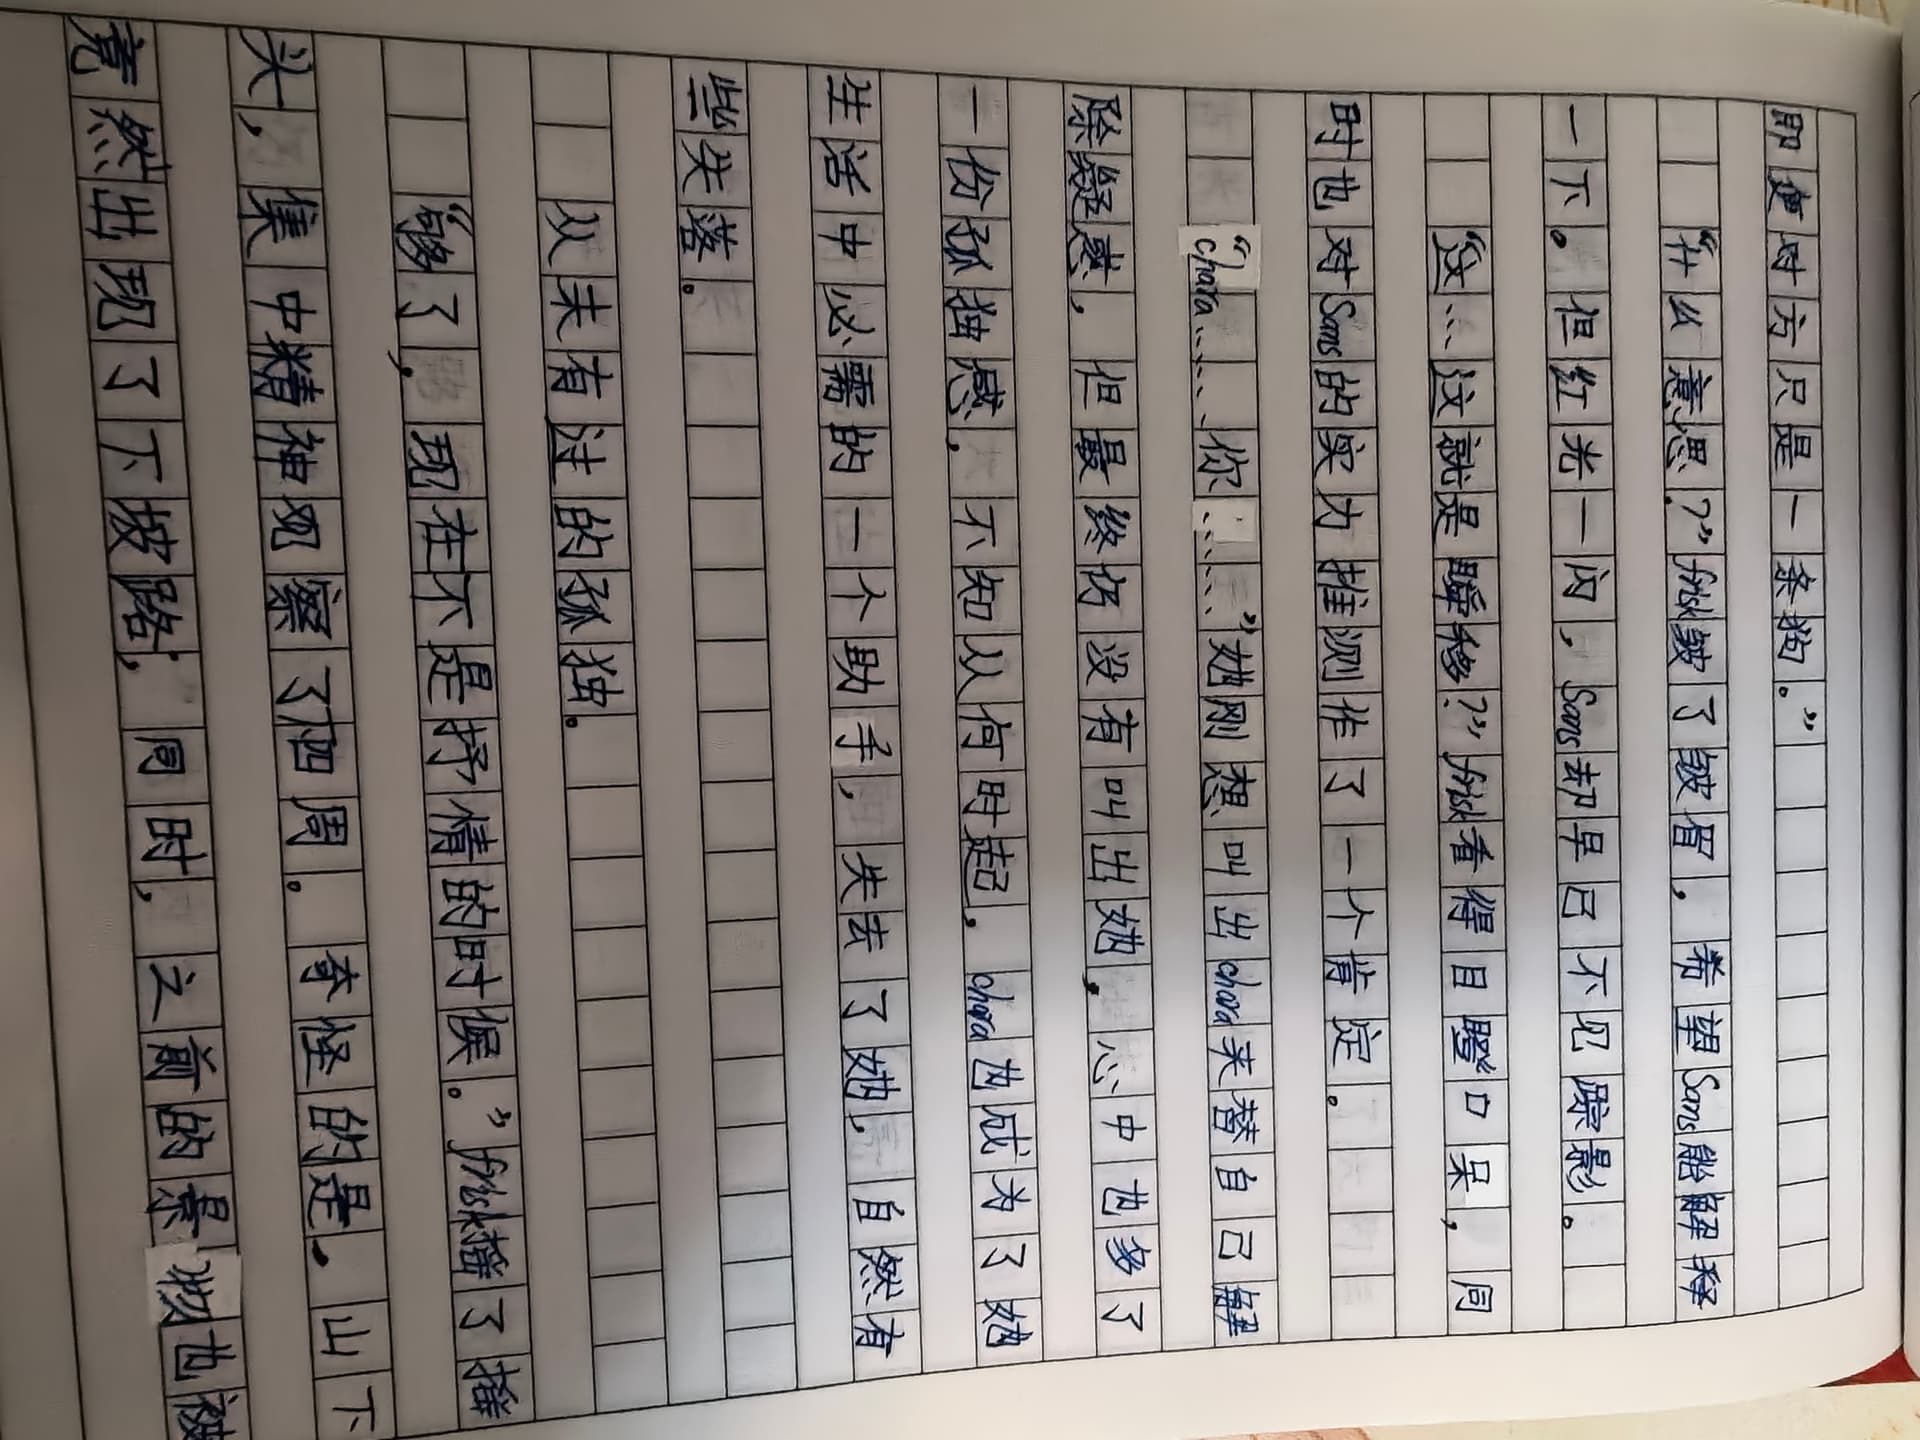 即使对方只是一条狗。”
“什么意思？”frisk皱了皱眉，希望Sans能解释
一下。但红光一闪，Sans却早已不见踪影。
“这……这就是瞬移？”frisk看得目瞪口呆，同
时也对Sans的实力推测作了一个肯定。
“chara……、你……”她刚想叫出chara来替自己解
除疑惑，但最终仍没有叫出她，心中也多了
一份孤独感，不知从何时起，chara也成为了她
生活中必需的一个助手，失去了她，自然有
些失落。
从未有过的孤独。
“够了，现在不是抒情的时候。”frisk摇了摇
头，集中精神观察了四周。奇怪的是，山下
竟然出现了下坡路，同时，之前的景物也被